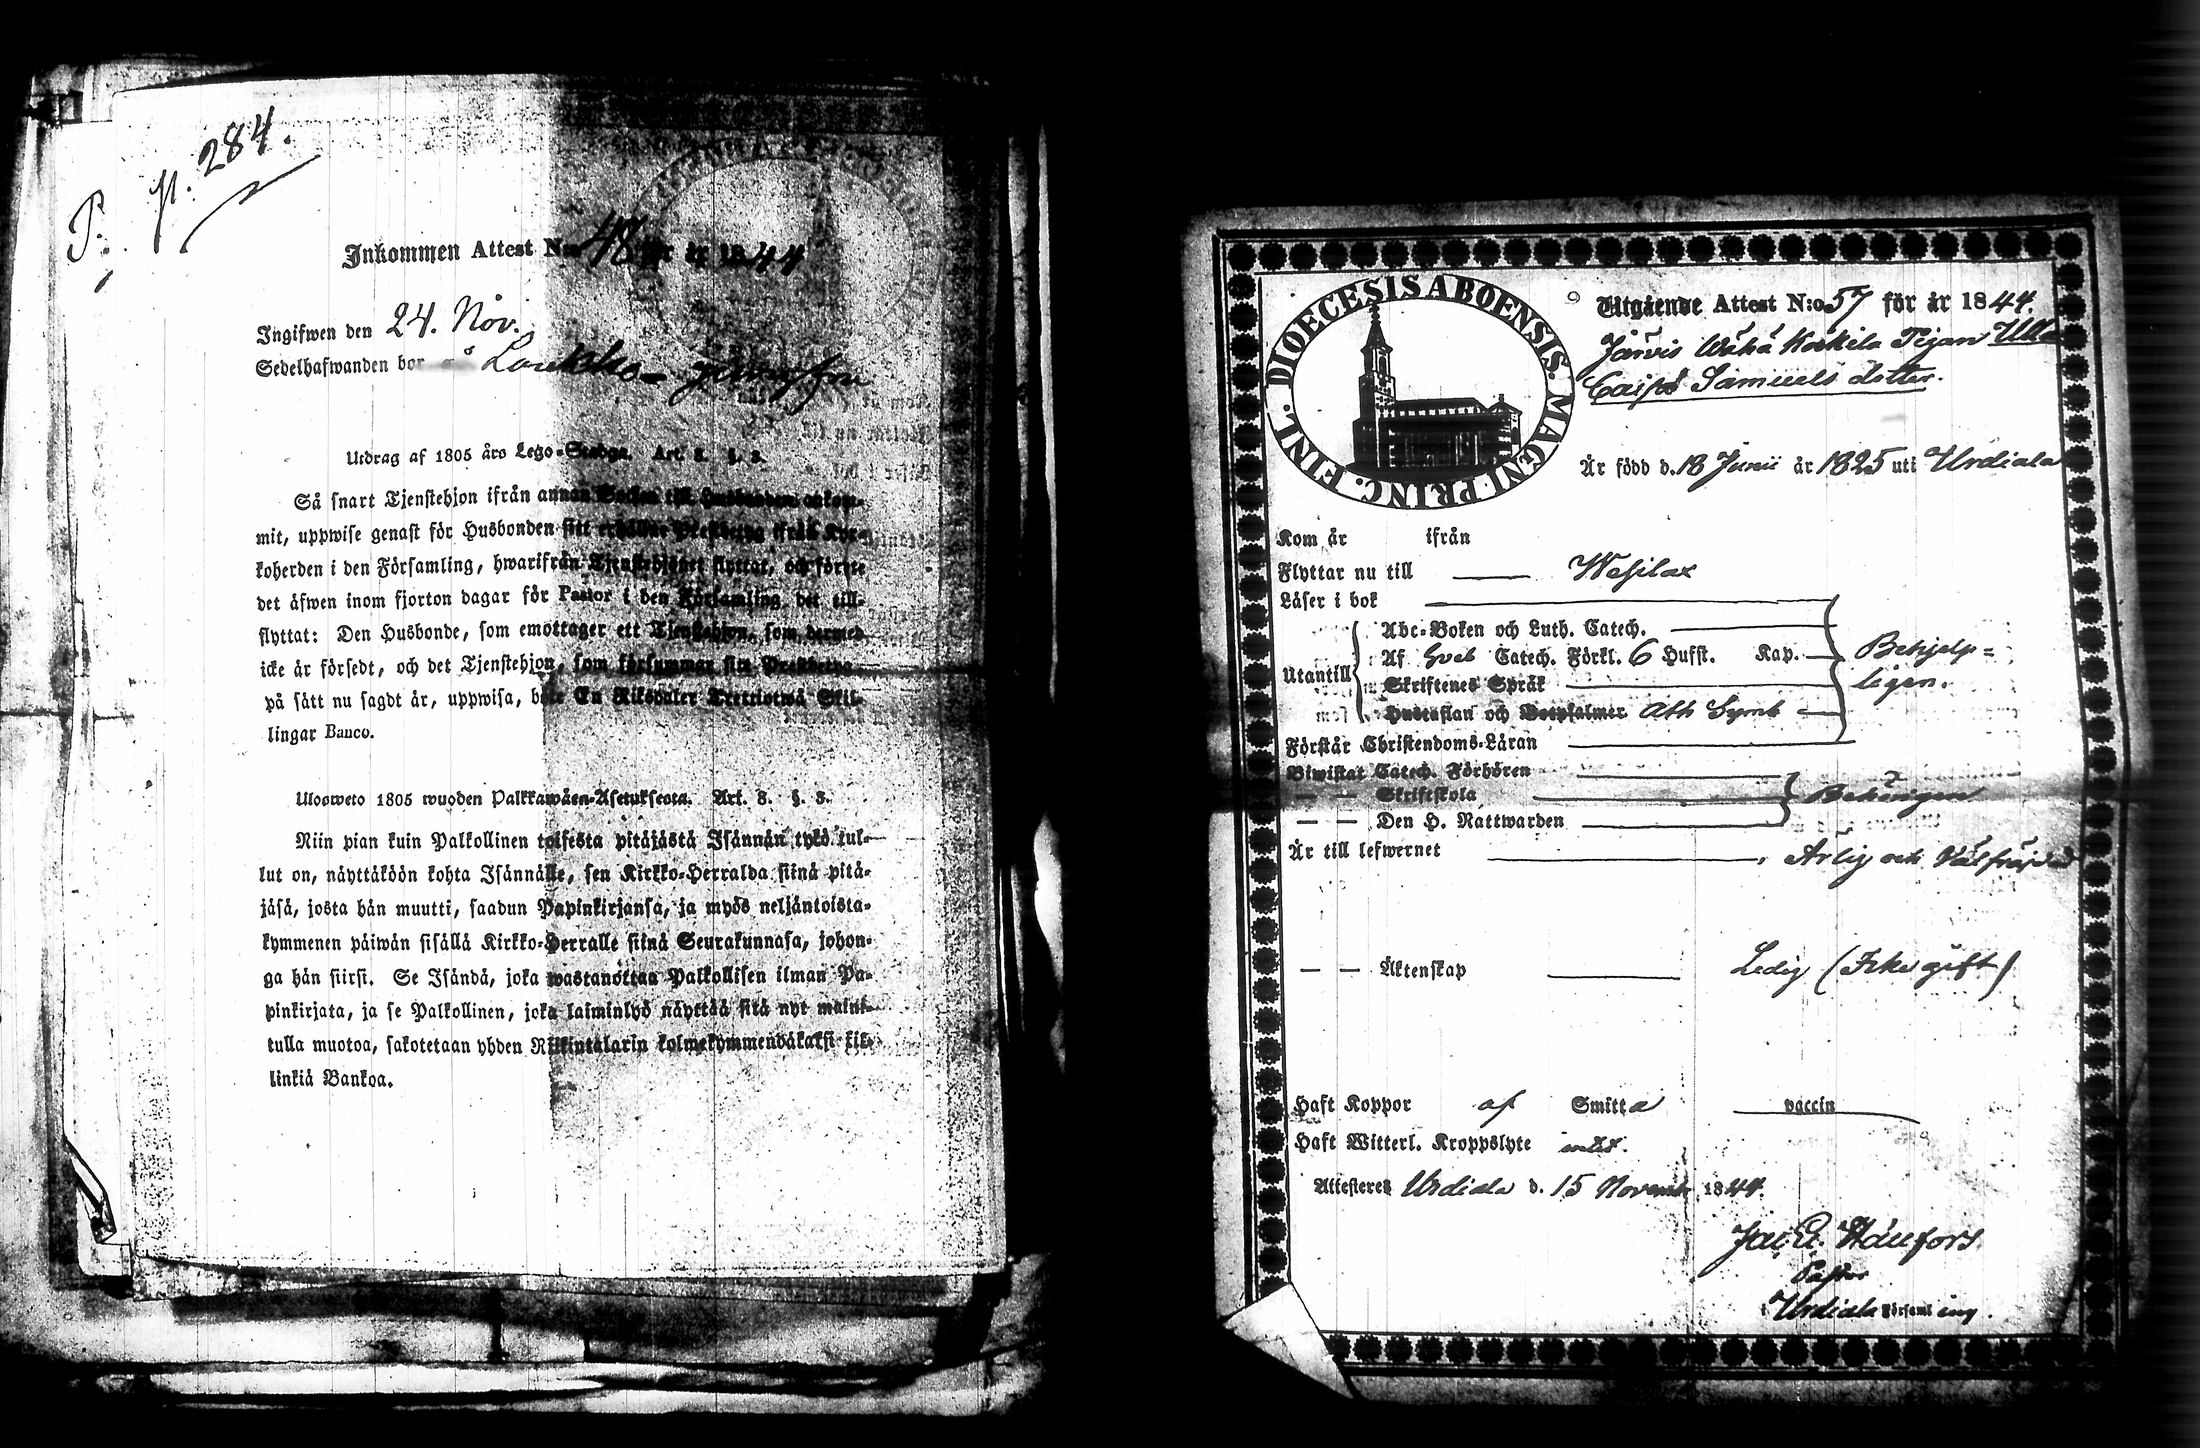 P. p. 284.
Inkommen Attest N:o 48 för år 1844
Ingifwen den 24. Nov.
Sedelhafwanden bor på Loukko-
Utdrag af 1805 års Lego-Stadga. Art. 8. §. 3.
Så snart Tjenstehjon ifrån annan Socken till Husbonden ankom-
mit, uppwise genast för Husbonden sitt erhållne Prestbetyg ifrån Kyr-
koherden i den Församling, hwarifrån Tjenstehjonet flyttat, och förete
det äfwen inom fjorton dagar för Pastor i den Församling det till-
flyttat: Den Husbonde, som emottager ett Tjenstehjon, som dermed
icke är försedt, och det Tjenstehjon, som försummar sitt Prestbetyg
på sätt nu sagdt är, uppwisa, böte En Riksdaler Trettiotwå Skil-
lingar Banco.
Ulosweto 1805 wuoden Palkkawäen-Asetuksesta. Art. 8. §. 3.
Niin pian kuin Palkollinen toisesta pitäjästä Isännän tykö tul-
lut on, näyttäköön kohta Isännälle, sen Kirkko-Herralda siinä pitä-
jäsä, josta hän muutti, saadun Papinkirjansa, ja myös neljäntoista-
kymmenen päiwän sisällä Kirkko-Herralle siinä Seurakunnasa, johon-
ga hän siirsi. Se Isändä, joka wastanottaa Palkollisen ilman Pa-
pinkirjata, ja se Palkollinen, joka laiminlyö näyttää sitä nyt maini-
tulla muotoa, sakotetaan yhden Riikintalarin kolmekymmendäkaksi kil-
linkiä Bankoa.
DIOECESIS ABOENSIS. MAGNI PRINC. FINL.
Utgående Attest N:o 57 för år 1844.
Järvis Wähä Korkila Pigan Ulla
Caisa Samuels dotter.
Är född d. 18 Junii år 1825 uti Urdiala
Kom år ifrån
Flyttar nu till Wesilax
Läser i bok
Utantill
Abc-Boken och Luth. Catech.
Af Sveb Catech. Förkl. 6 Hufst. Kap.
Skriftenes Språk
Hustaflan och Botpsalmer Ath Symb
Behjelp=
ligen.
Förstår Christendoms-Läran
Biwistat Catech. Förhören
— — Skriftskola
— — Den H. Nattwarden
Behörigen
Är till lefwernet Ärlig och Välfräjdad
— — Äktenskap Ledig (Icke gift)
Haft Koppor af Smitta vaccin
Haft Witterl. Kroppslyte intet.
Attesteret Urdiala d. 15 November 1844.
Pastor
i Urdiala Församling.